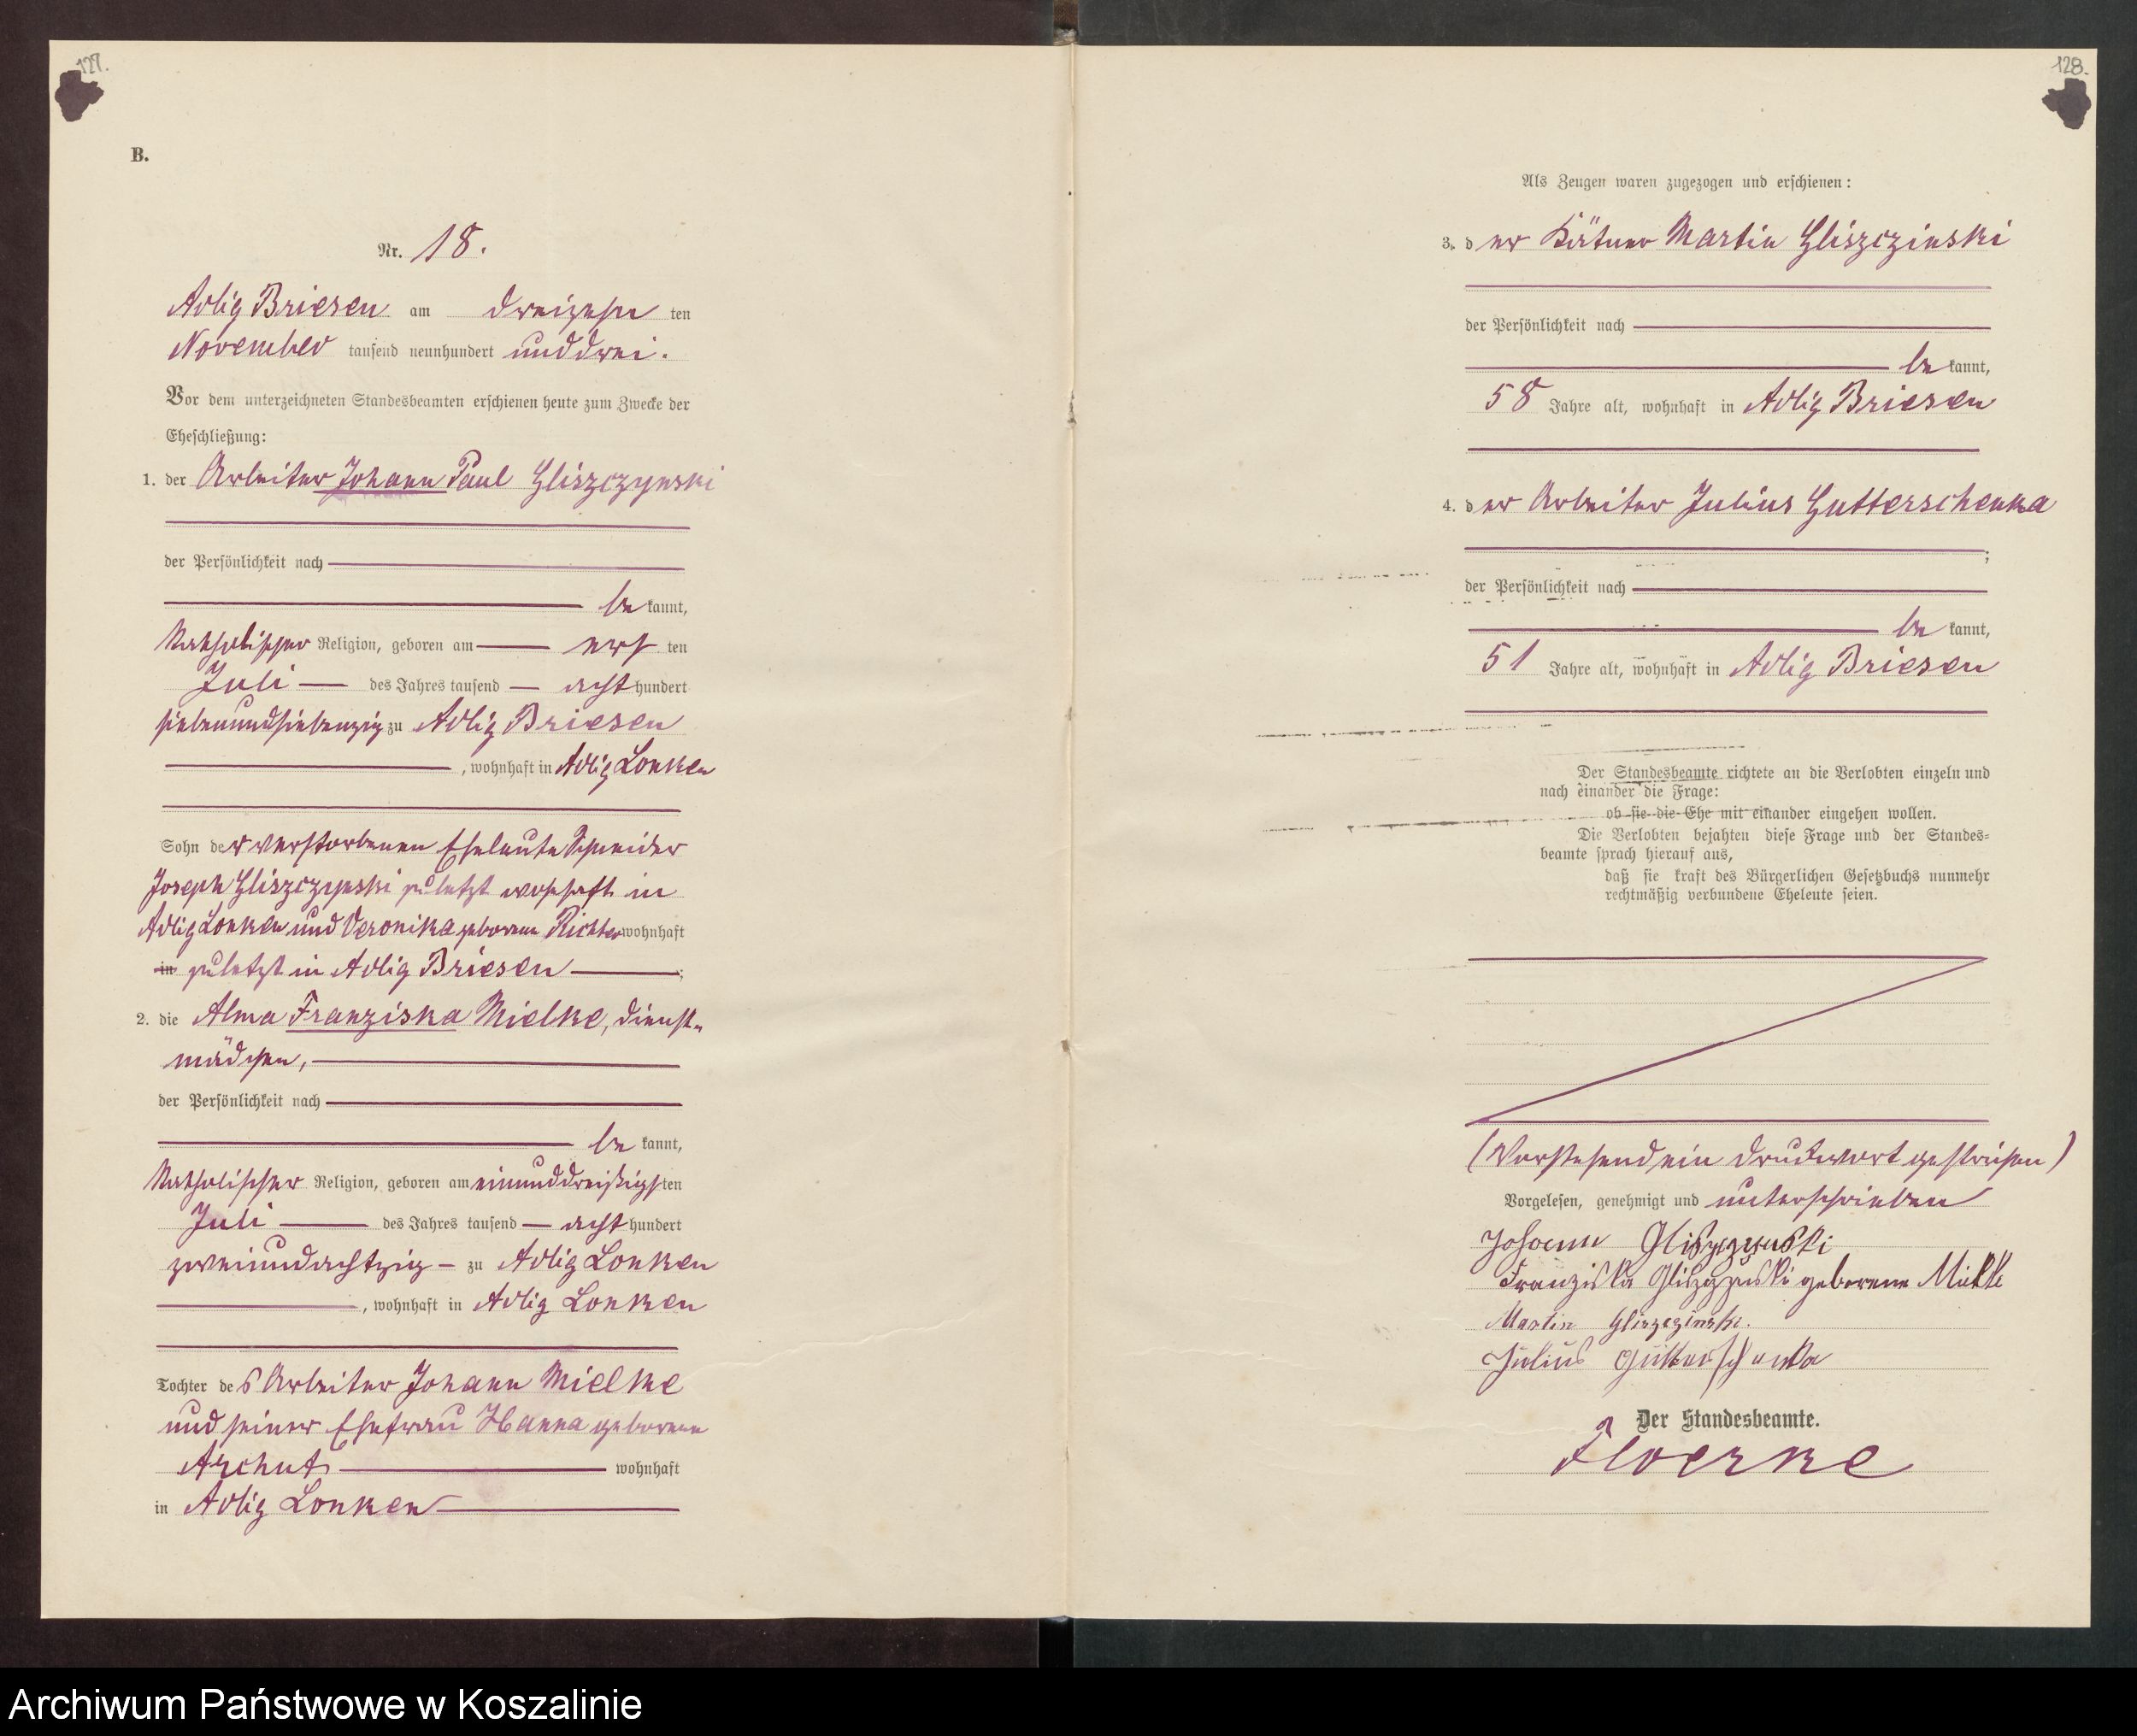 127.
B.
Nr. 18.
Adlig Briesen am dreizehn ten
November tausend neunhundert und drei.
Vor dem unterzeichneten Standesbeamten erschienen heute zum Zwecke der
Eheschließung:
1. der Arbeiter Johann Paul Gliszczynski
der Persönlichkeit nach
be kannt,
katholischer Religion, geboren am erst ten
Juli des Jahres tausend acht hundert
siebenundsiebenzig zu Adlig Briesen
, wohnhaft in Adlig Lonken
Sohn der verstorbenen Eheleute Schneider
Joseph Gliszczynski zuletzt wohnhaft in
Adlig Lonken und Veronika geborene Richter wohnhaft
in zuletzt in Adlig Briesen ;
2. die Alma Franziska Mielke, Dienst-
mädchen,
der Persönlichkeit nach
be kannt,
katholischer Religion, geboren am einunddreißigsten
Juli des Jahres tausend acht hundert
zweiundachtzig zu Adlig Lonken
, wohnhaft in Adlig Lonken
Tochter des Arbeiter Johann Mielke
und seiner Ehefrau Hanna geborene
Arzhut wohnhaft
in Adlig Lonken
128.
Als Zeugen waren zugezogen und erschienen:
3. der Kätner Martin Gliszczinski
der Persönlichkeit nach
be kannt,
58 Jahre alt, wohnhaft in Adlig Briesen
4. der Arbeiter Julius Gutterschenka
;
der Persönlichkeit nach
be kannt,
51 Jahre alt, wohnhaft in Adlig Briesen
Der Standesbeamte richtete an die Verlobten einzeln und
nach einander die Frage:
ob sie die Ehe mit einander eingehen wollen.
Die Verlobten bejahten diese Frage und der Standes-
beamte sprach hierauf aus,
daß sie kraft des Bürgerlichen Gesetzbuchs nunmehr
rechtmäßig verbundene Eheleute seien.
(Vorstehend ein Druckwort gestrichen)
Vorgelesen, genehmigt und unterschrieben
Johann Gliszczynski
Franziska Gliszczynski geborene Mielke
Martin Gliszczinski.
Julius Gutterschenka
Der Standesbeamte.
Floerke
Archiwum Państwowe w Koszalinie